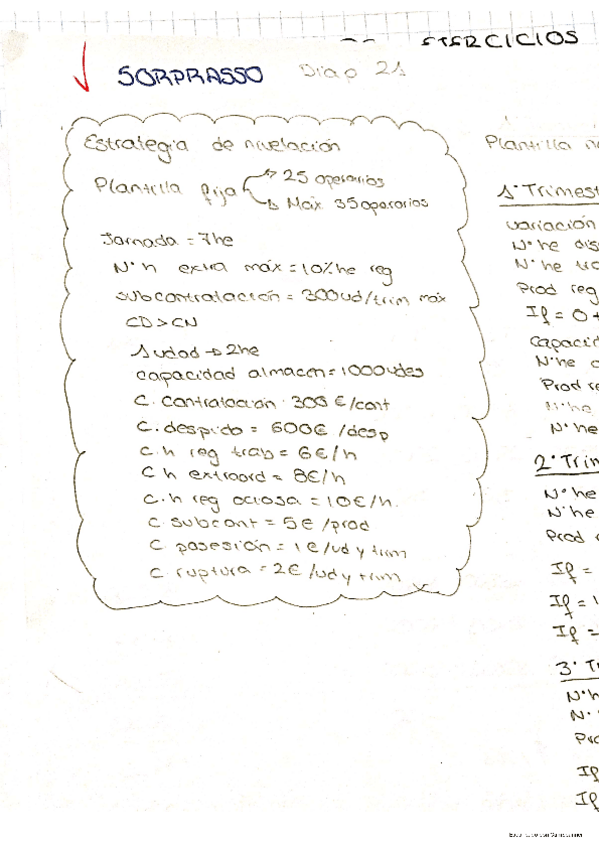 EJERCICIOS
SORPRASSO Diap 21
Estrategia de nivelación
Plantilla fija → 25 operarios
→ Máx 35 operarios
Jornada = 7he
Nº h extra máx = 10% he reg
subcontratación = 300ud/trim máx
CD > CN
1 udad → 2he
capacidad almacén = 1000 udes
C. contratación 300 €/cont
C. despido = 600€ /desp
C. h reg trab = 6€/h
C h extraord = 8€/h
C. h reg ociosa = 10€/h.
C. subcont = 5€ /prod
C posesión = 1€/ud y trim
C. ruptura = 2€ /ud y trim
Plantilla
1º Trimest
variación
Nº he dis
Nº he tra
Prod reg
If = 0 +
capacid
Nº he
Prod re
Nº he
2º Trim
Nº he
Nº he
Prod
If =
If =
If =
3º T
Nº h
Nº
Pro
If
If